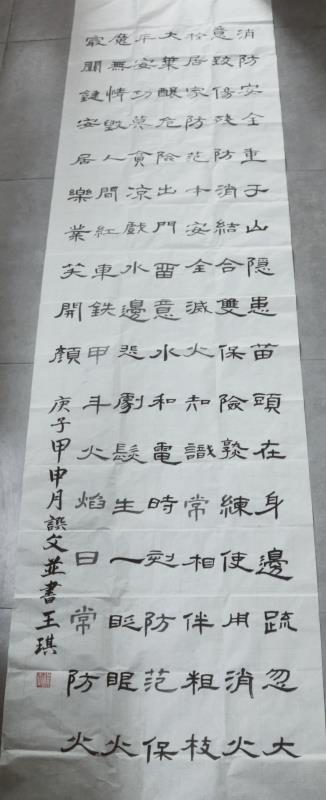 消防安全重于山隱患苗頭在身邊疏忽大
意致傷殘防消結合雙保險熟練使用消火
栓居家防范本安全滅火知識常相伴粗枝
大葉釀危險出門留意水和電時刻防范保
平安功莫貪凉戲水邊悲劇髮生一眨眼火
魔無情毀人間紅車鉄甲斗火焰日常防火
最關鍵安居樂業笑開顏
庚子甲申月譔文並書王琪